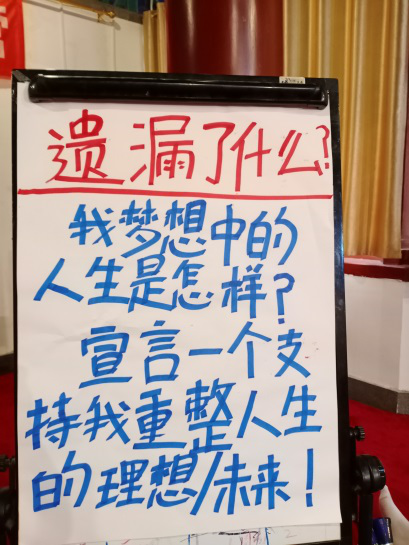 遗漏了什么?
我梦想中的
人生是怎样?
宣言一个支
持我重整人生
的理想/未来!